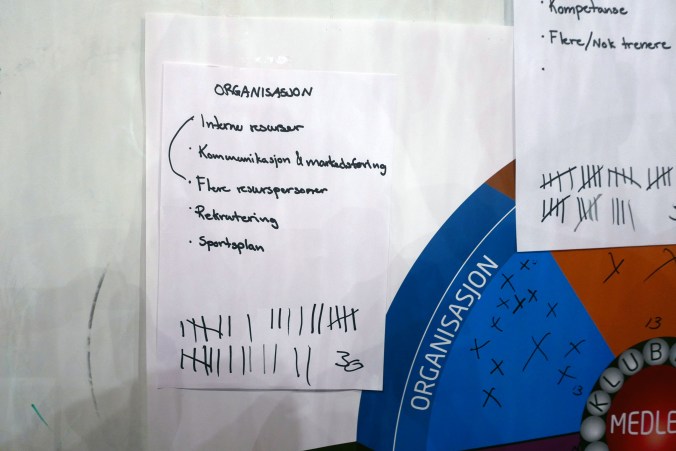 ORGANISASJON
• Interne resurser
• Kommunikasjon & markedsføring
• Flere resurspersoner
• Rekrutering
• Sportsplan
36
• Kompetanse
• Flere/Nok trenere
•
ORGANISASJON
13
13
KLUBB
MEDLE